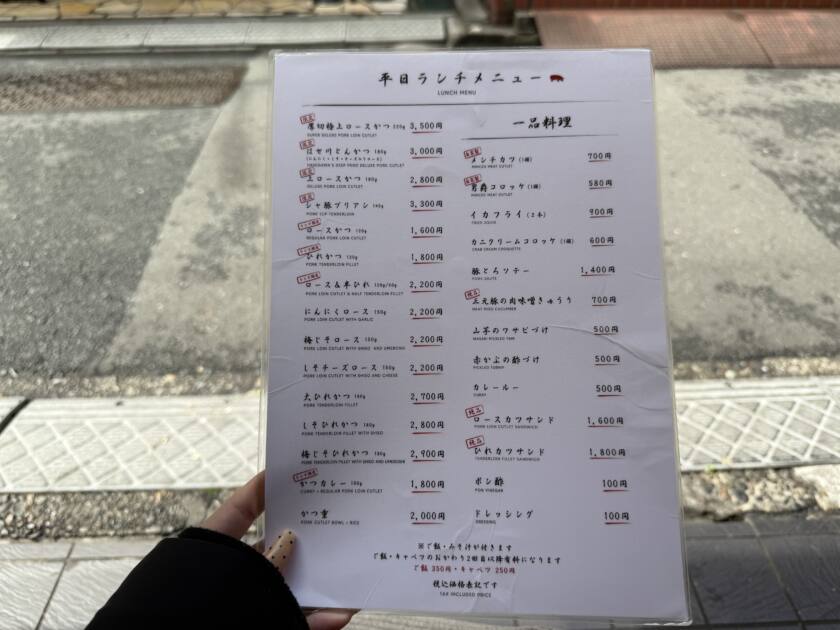 平日ランチメニュー
LUNCH MENU
限定
厚切極上ロースかつ 220g 3,500円
SUPER DELUXE PORK LOIN CUTLET
限定
はせ川とんかつ 180g 3,000円
HASEGAWA'S DEEP FRIED DELUXE PORK CUTLET
限定
上ロースかつ 180g 2,800円
DELUXE PORK LOIN CUTLET
限定
シャ豚ブリアン 3,300円
ロースかつ 1,600円
REGULAR PORK LOIN CUTLET
ひれかつ 120g 1,800円
PORK TENDERLOIN FILLET
ロース&半ひれ 2,200円
PORK LOIN CUTLET & HALF TENDERLOIN FILLET
にんにくロース 150g 2,200円
PORK LOIN CUTLET WITH GARLIC
梅じそロース 150g 2,200円
PORK LOIN CUTLET WITH SHISO AND UMEBOSHI
しそチーズロース 150g 2,200円
PORK LOIN CUTLET WITH SHISO AND CHEESE
大ひれかつ 180g 2,700円
PORK TENDERLOIN FILLET
しそひれかつ 180g 2,800円
PORK TENDERLOIN FILLET WITH SHISO
梅じそひれかつ 180g 2,900円
PORK TENDERLOIN FILLET WITH SHISO AND UMEBOSHI
かつカレー 1,800円
CURRY + REGULAR PORK LOIN CUTLET
かつ重 2,000円
PORK CUTLET BOWL + RICE
一品料理
メンチカツ (1個) 700円
MINCED MEAT CUTLET
男爵コロッケ (1個) 580円
MINCED MEAT CUTLET
イカフライ (2本) 900円
FRIED SQUID
カニクリームコロッケ (1個) 600円
CRAB CREAM CROQUETTE
豚とろソテー 1,400円
PORK SAUTE
三元豚の肉味噌きゅうり 700円
MEAT MISO CUCUMBER
山芋のワサビづけ 500円
WASABI PICKLED YAM
赤かぶの酢づけ 500円
PICKLED TURNIP
カレールー 500円
CURRY
ロースカツサンド 1,600円
PORK LOIN CUTLET SANDWICH
ひれカツサンド 1,800円
TENDERLOIN FILLET SANDWICH
ポン酢 100円
PON VINEGAR
ドレッシング 100円
DRESSING
※ご飯・みそ汁が付きます
ご飯・キャベツのおかわり2回目以降有料になります
ご飯 350円・キャベツ 250円
税込価格表記です
TAX INCLUDED PRICE